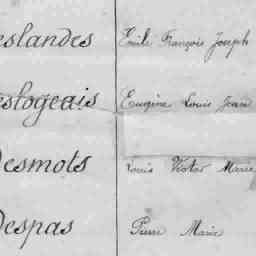 eslandes Emile François Joseph
eslogeais Eugène Louis Jean
Desmots Louis Victor Marie
Despas Pierre Marie